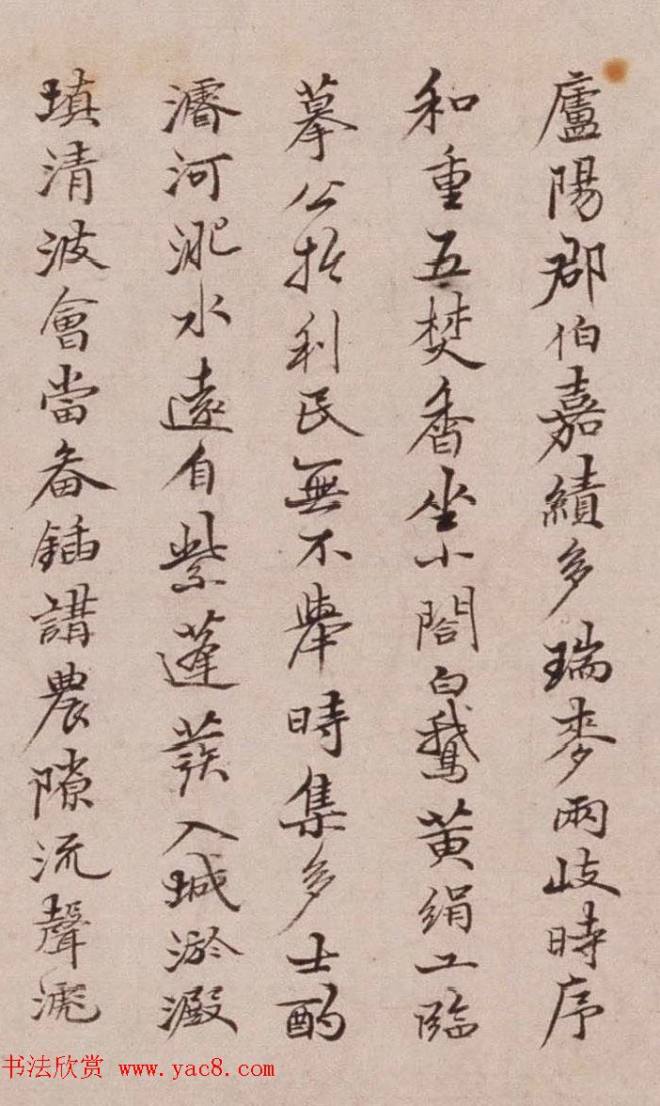 廬陽郡伯嘉績多瑞麥兩岐時序
和重五焚香坐小閣白鵝黃絹工臨
摹公扵利民無不舉時集多士酌
濬河淝水遠自紫蓬發入城淤澱
填清波會當畚鍤講農隙流聲
书法欣赏 www.yac8.com